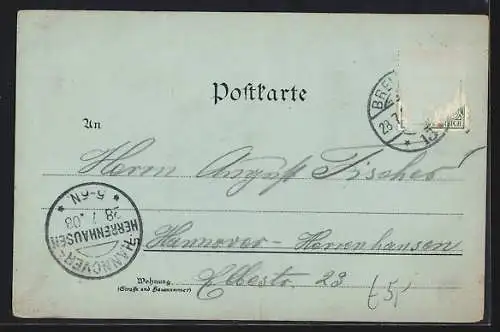 Postkarte
An
Herrn August Fischer
Hannover-Herrenhausen
Wohnung
(Straße und Hausnummer)
Elbestr. 23
HANNOVER-HERRENHAUSEN
28.7.03
5-6N.
BRE
28.7